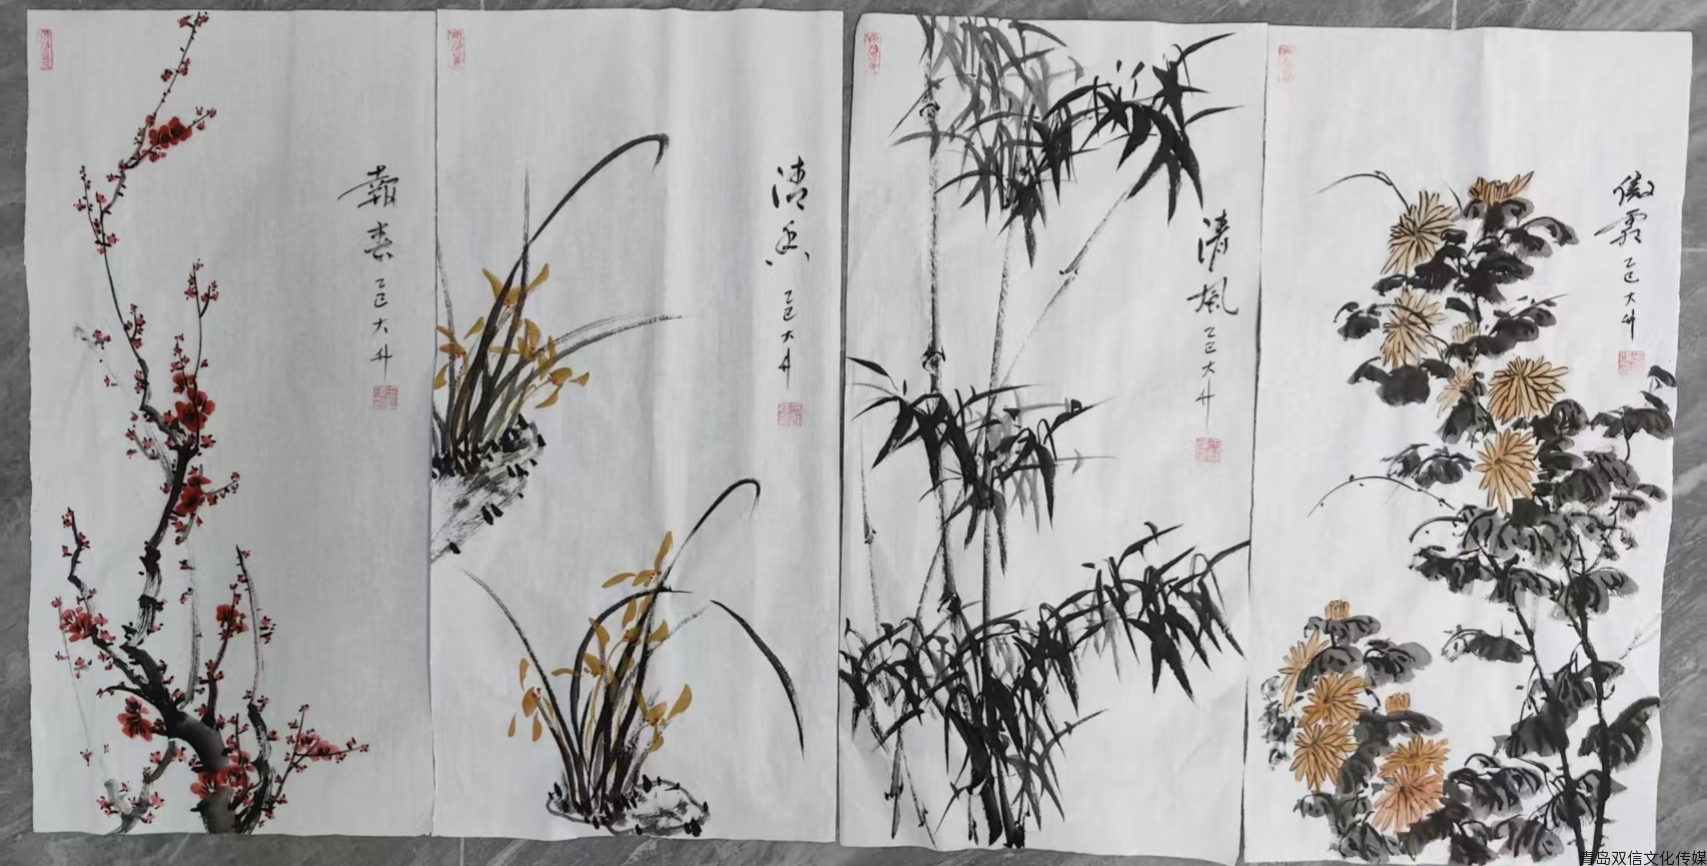 報春
乙巳大升
清香
乙巳大升
清風
乙巳大升
傲霜
乙巳大升
青岛双信文化传媒